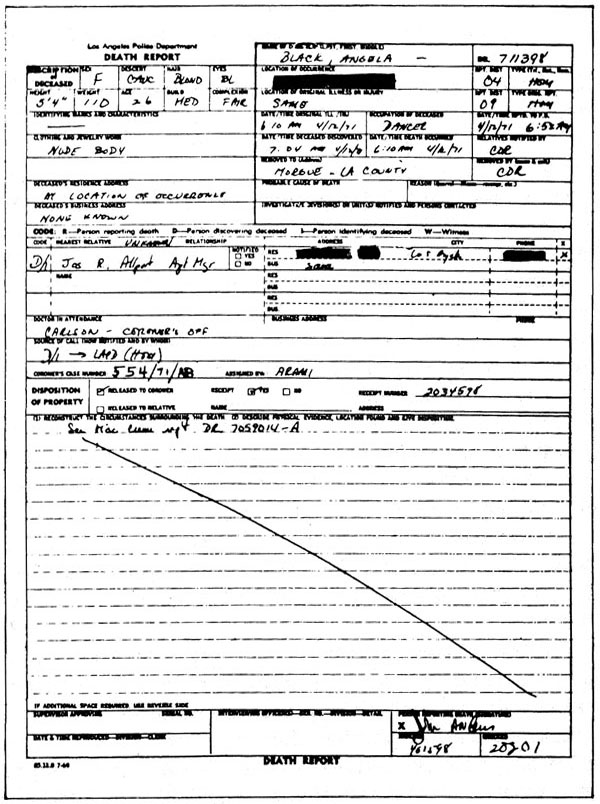 Los Angeles Police Department
DEATH REPORT
NAME OF DECEASED (LAST, FIRST, MIDDLE)
BLACK, ANGELA -
DR. 711398
DESCRIPTION OF DECEASED
SEX
F
DESCENT
CAUC
HAIR
BLOND
EYES
BL
LOCATION OF OCCURRENCE
RPT. DIST
04
HEIGHT
5'4"
WEIGHT
110
AGE
26
BUILD
MED
COMPLEXION
FAIR
LOCATION OF ORIGINAL ILLNESS OR INJURY
SAME
09
IDENTIFYING MARKS AND CHARACTERISTICS
DATE/TIME ORIGINAL ILL./INJ
6:10 AM 4/12/71
OCCUPATION OF DECEASED
DANCER
4/12/71
CLOTHING AND JEWELRY WORN
NUDE BODY
DATE/TIME DECEASED DISCOVERED
7:04 AM
DATE/TIME DEATH OCCURRED
6:10 AM 4/12/71
RELATIVES NOTIFIED BY
CDR
REMOVED TO (Address)
MORGUE - LA COUNTY
CDR
DECEASED'S RESIDENCE ADDRESS
AT LOCATION OF OCCURRENCE
PROBABLE CAUSE OF DEATH
DECEASED'S BUSINESS ADDRESS
NONE KNOWN
INVESTIGATIVE DIVISION(S) OR UNIT(S) NOTIFIED AND PERSONS CONTACTED
CODE: R—Person reporting death D—Person discovering deceased I—Person identifying deceased W—Witness
CODE NEAREST RELATIVE UNKNOWN RELATIONSHIP NOTIFIED ADDRESS CITY PHONE X
D/I Jas R. Allport Apt Mgr
YES
NO
RES
X
BUS
same
NAME
RES
BUS
RES
BUS
DOCTOR IN ATTENDANCE
BUSINESS ADDRESS
PHONE
CARLSON - CORONER'S OFF
SOURCE OF CALL (HOW NOTIFIED AND BY WHOM)
D/I → LAPD
CORONER'S CASE NUMBER 554/71/AB
ASSIGNED BY:
DISPOSITION OF PROPERTY
RELEASED TO CORONER
RECEIPT YES NO
RECEIPT NUMBER 2034598
RELEASED TO RELATIVE NAME ADDRESS
(1) RECONSTRUCT THE CIRCUMSTANCES SURROUNDING THE DEATH (2) DESCRIBE PHYSICAL EVIDENCE, LOCATION FOUND AND GIVE DISPOSITION.
DR 7059014-A
IF ADDITIONAL SPACE REQUIRED, USE REVERSE SIDE
SUPERVISOR APPROVING SERIAL NO.
INTERVIEWING OFFICER(S)—SER. NO.—DIVISION—DETAIL
PERSON REPORTING DEATH (SIGNATURE)
X
DATE & TIME REPRODUCED—DIVISION—CLERK
20201
DEATH REPORT